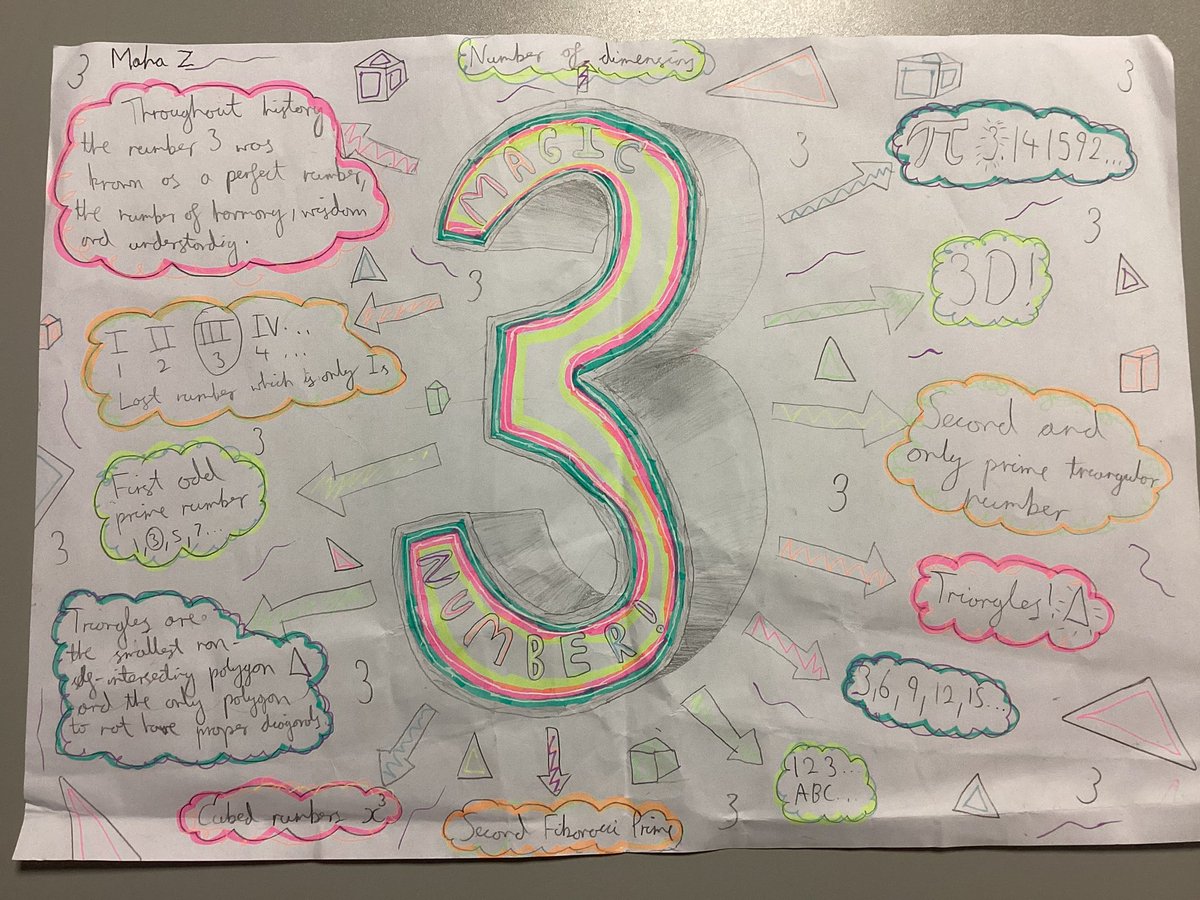 3 Maha Z
Number of dimensions
3
Throughout history
the number 3 was
known as a perfect number,
the number of harmony, wisdom
and understanding.
MAGIC
NUMBER!
3
π 3.141592...
3
3D!
3
I II III IV...
1 2 3 4 ...
Last number which is only Is
Second and
only prime triangular
number
3
First odd
prime number
1, 3, 5, 7...
3
3
Triangles!
Triangles are
the smallest non-
self-intersecting polygon
and the only polygon
to not have proper diagonals
3
3, 6, 9, 12, 15...
123...
ABC...
3
3
Cubed numbers x³
Second Fibonacci Prime